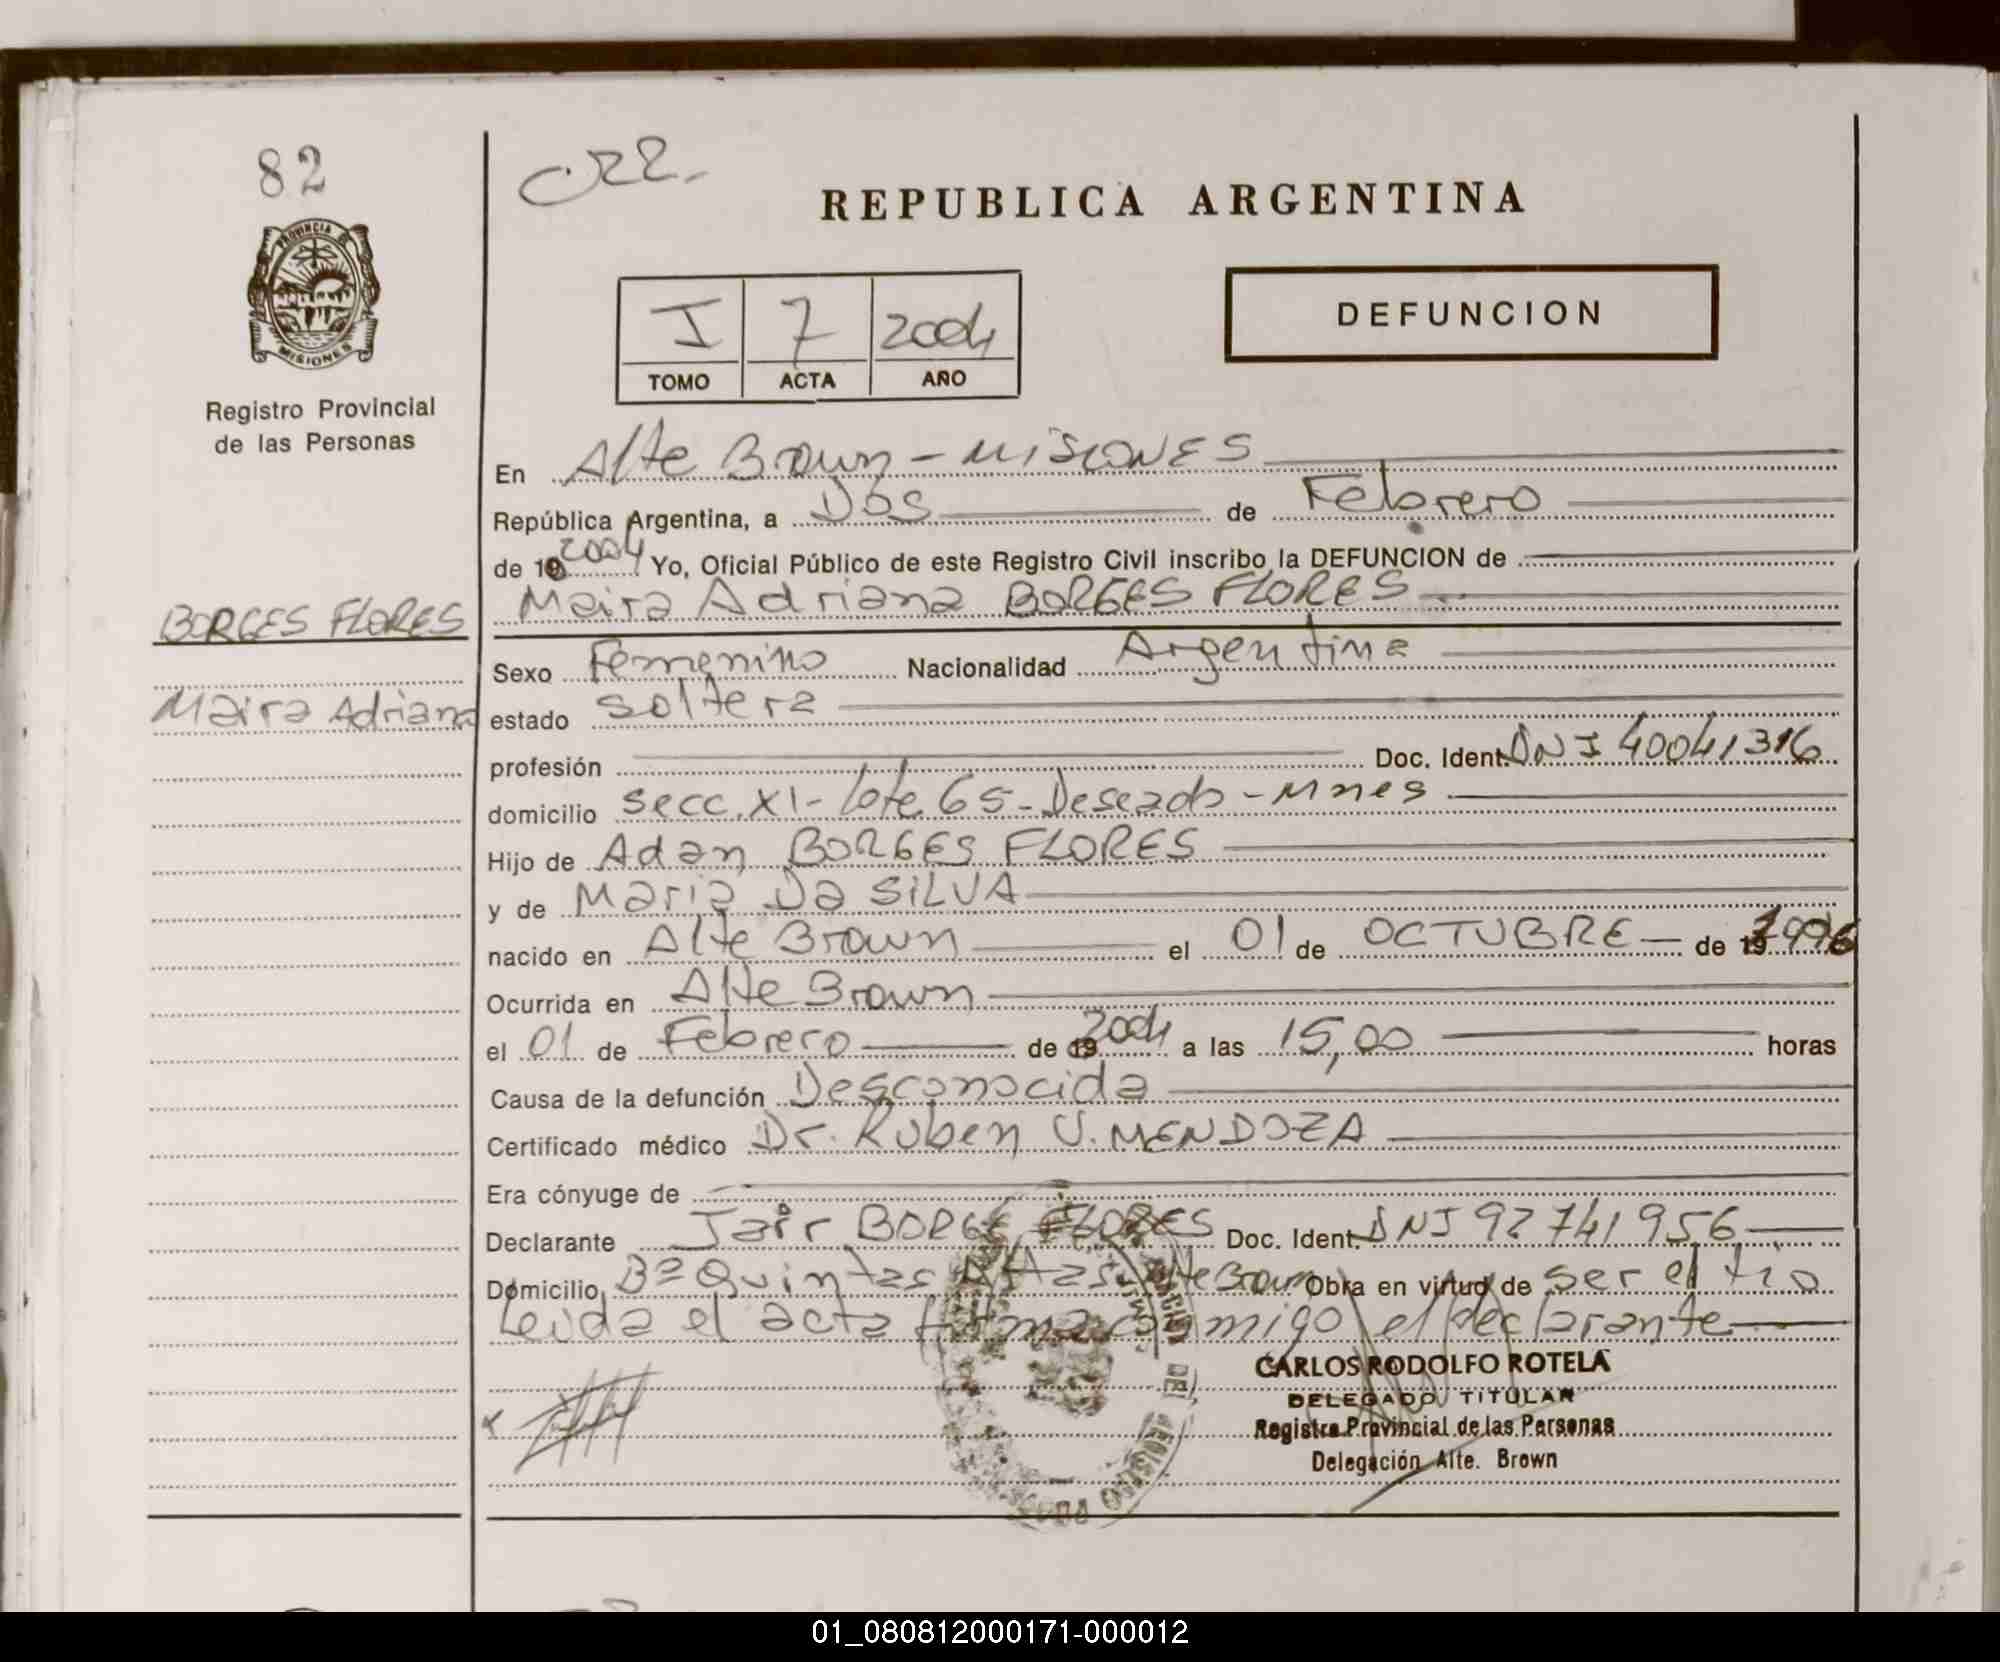 82
REPUBLICA ARGENTINA
PROVINCIA DE
MISIONES
Registro Provincial
de las Personas
I 7 2004
TOMO ACTA AÑO
DEFUNCION
En Alte Brown - MISIONES
República Argentina, a Dos de Febrero
de 19 2004 Yo, Oficial Público de este Registro Civil inscribo la DEFUNCION de
BORGES FLORES
Maira Adriana BORGES FLORES
Sexo Femenino Nacionalidad Argentina
Maira Adriana
estado soltera
profesión Doc. Ident. DNI 40041316
domicilio secc. XI - lote 65 - Deseado - Mnes
Hijo de Adan BORGES FLORES
y de Maria Da SILVA
nacido en Alte Brown el 01 de OCTUBRE de 1996
Ocurrida en Alte Brown
el 01 de Febrero de 19 2004 a las 15,00 horas
Causa de la defunción Desconocida
Certificado médico Dr. Ruben U. MENDOZA
Era cónyuge de
Declarante Jair BORGE FLORES Doc. Ident. DNI 92741956
Domicilio Bº Quintas Altas Alte Brown Obra en virtud de ser el tio
Leida el acta firma conmigo el declarante
CARLOS RODOLFO ROTELA
DELEGADO TITULAR
Registro Provincial de las Personas
Delegación Alte. Brown
01_080812000171-000012